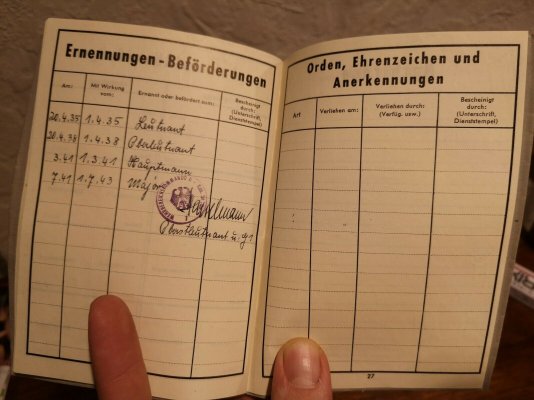 Ernennungen-Beförderungen
Am:
Mit Wirkung vom:
Ernannt oder befördert zum:
Bescheinigt durch: (Unterschrift, Dienststempel)
20.4.35 1.4.35 Leutnant
20.4.38 1.4.38 Oberleutnant
3.41 1.3.41 Hauptmann
7.41 1.7.43 Major
Oberstleutnant u.
Orden, Ehrenzeichen und
Anerkennungen
Art
Verliehen am:
Verliehen durch: (Verfüg. usw.)
Bescheinigt durch: (Unterschrift, Dienststempel)
27